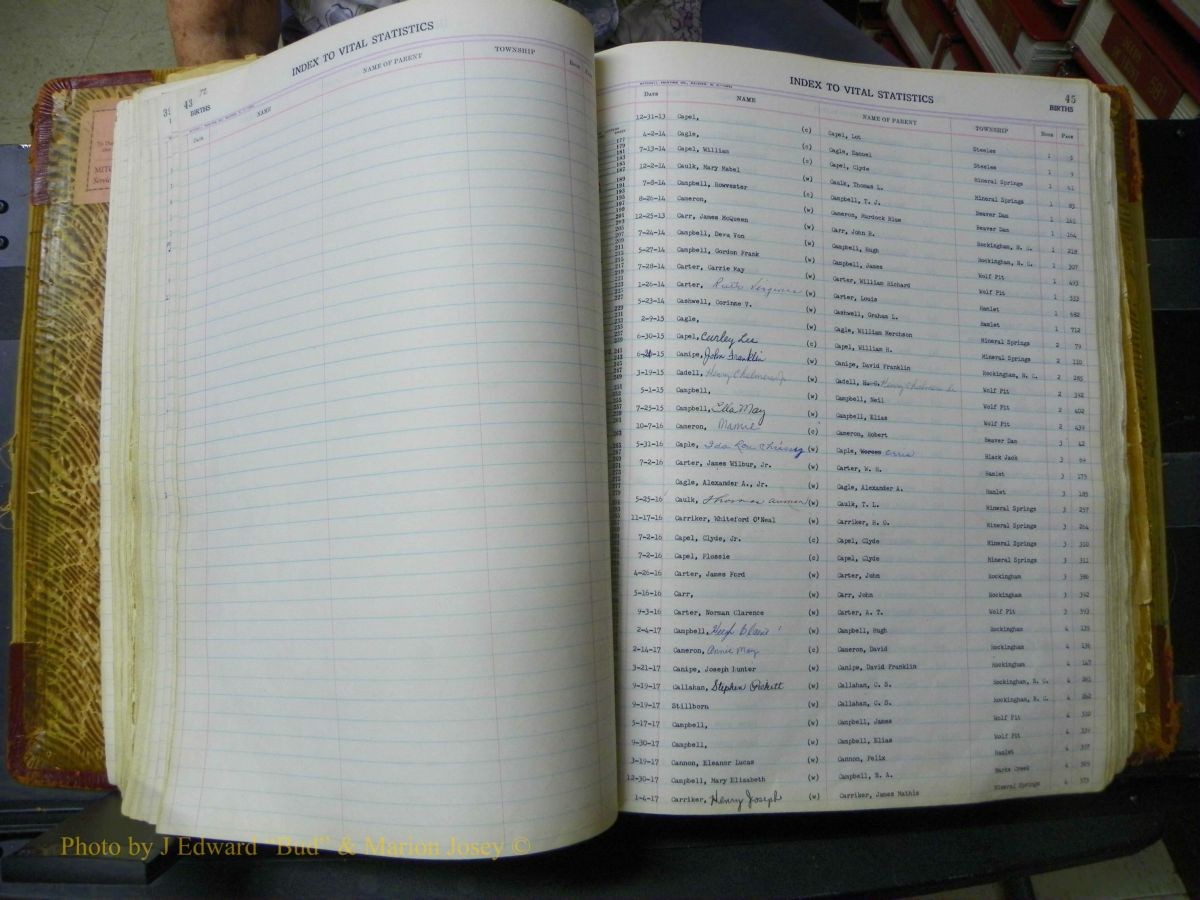 INDEX TO VITAL STATISTICS
NAME OF PARENT TOWNSHIP
43 BIRTHS NAME
Date
INDEX TO VITAL STATISTICS 45
BIRTHS
Date NAME NAME OF PARENT TOWNSHIP Book Page
12-31-13 Capel, (c) Capel, Lot Steeles 1 5
4-2-14 Cagle, (c) Cagle, Samuel Steeles 1 9
7-13-14 Capel, William (c) Capel, Clyde Mineral Springs 1 61
12-2-14 Caulk, Mary Mabel (w) Caulk, Thomas L. Mineral Springs 1 83
7-8-14 Campbell, (c) Campbell, T. J. Beaver Dam 1
8-26-14 Cameron, (w) Cameron, Murdock Blue Beaver Dam 1 164
12-25-13 Carr, James McQueen (w) Carr, John R. Rockingham, N. C. 1 218
7-24-14 Campbell, Deva Von (w) Campbell, Hugh Rockingham, N. C. 1 307
5-27-14 Campbell, Gordon Frank (w) Campbell, James Wolf Pit 1 493
7-28-14 Carter, Carrie May (w) Carter, William Richard Wolf Pit 1 533
1-26-14 Carter, Ruth Virginia (w) Carter, Louis Hamlet 1 682
5-23-14 Cashwell, Corinne V. (w) Cashwell, Graham L. Hamlet 1 712
2-9-15 Cagle, (w) Cagle, William Murchson Mineral Springs 2 79
6-30-15 Capel, Curley Lee (c) Capel, William H. Mineral Springs 2 110
Canipe, John Franklin (w) Canipe, David Franklin Rockingham, N. C. 2 285
3-19-15 Cadell, Henry Chalmers Jr (w) Cadell, H. C. Henry Chalmers Sr Wolf Pit 2 392
5-1-15 Campbell, (w) Campbell, Neil Wolf Pit 2 402
7-25-15 Campbell, Ella May (w) Campbell, Elias Wolf Pit 2 439
10-7-16 Cameron, Mamie (c) Cameron, Robert Beaver Dam 3 42
5-31-16 Caple, Ida Lou Chrissy (w) Caple, Black Jack 3 64
7-2-16 Carter, James Wilbur, Jr. (w) Carter, W. H. Hamlet 3 175
Cagle, Alexander A., Jr. (w) Cagle, Alexander A. Hamlet 3 185
5-25-16 Caulk, Thomas (w) Caulk, T. L. Mineral Springs 3 257
11-17-16 Carriker, Whiteford O'Neal (w) Carriker, H. G. Mineral Springs 3 264
7-2-16 Capel, Clyde, Jr. (c) Capel, Clyde Mineral Springs 3 310
7-2-16 Capel, Flossie (c) Capel, Clyde Mineral Springs 3 311
4-26-16 Carter, James Ford (w) Carter, John Rockingham 3 386
5-16-16 Carr, (w) Carr, John Rockingham 3 392
9-3-16 Carter, Norman Clarence (w) Carter, A. T. Wolf Pit 3 593
2-4-17 Campbell, Hugh Blair (w) Campbell, Hugh Rockingham 4 135
2-14-17 Cameron, Annie May (c) Cameron, David Rockingham 4 136
3-21-17 Canipe, Joseph Hunter (w) Canipe, David Franklin Rockingham 4 147
9-19-17 Callahan, Stephen Pickett (w) Callahan, C. S. Rockingham, N. C. 4 261
9-19-17 Stillborn (w) Callahan, C. S. Rockingham, N. C. 4 262
5-17-17 Campbell, (w) Campbell, James Wolf Pit 4
9-30-17 Campbell, (w) Campbell, Elias Wolf Pit 4
3-19-17 Cannon, Eleanor Lucas (w) Cannon, Felix Hamlet 4
12-30-17 Campbell, Mary Elizabeth (w) Campbell, N. A. Marks Creek 4
1-4-17 Carriker, Henry Joseph (w) Carriker, James Mathis Mineral Springs 4 573
Photo by J Edward "Bud" & Marion Josey ©